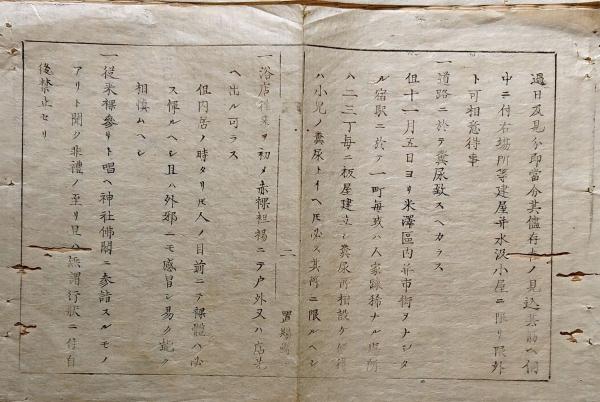 過日及見分即當今其儘存十ノ見込其筋ヘ伺
中ニ付右場所等建屋并水汲小屋ニ限リ限外
ト可相意待事
一道路ニ於テ糞尿致スヘカラス
但十一月五日ヨリ米澤區内并市街ヲナシタ
ル宿駅ニ於テ一町毎或ハ人家疎稀ナル場所
ハ二三丁毎ニ板屋建立シ糞尿所相設ケ候得
ハ小兒ノ糞尿トイヘ𪜈必ス其所ニ限ルヘシ
二
置賜縣
一浴店往来ヲ初メ赤裸袒裼ニテ戸外又ハ店先
ヘ出ル可ラス
但内居ノ時タリ𪜈人ノ目前ニテ裸體ハ必
ス憚ルヘシ且ハ外邪ニモ感冒シ易ク能ク
相慎ムヘシ
一従来裸參リト唱ヘ神社佛閣ニ参詣スルモノ
アリト聞ク非禮ノ至リ且ハ無謂行状ニ付自
後禁止セリ